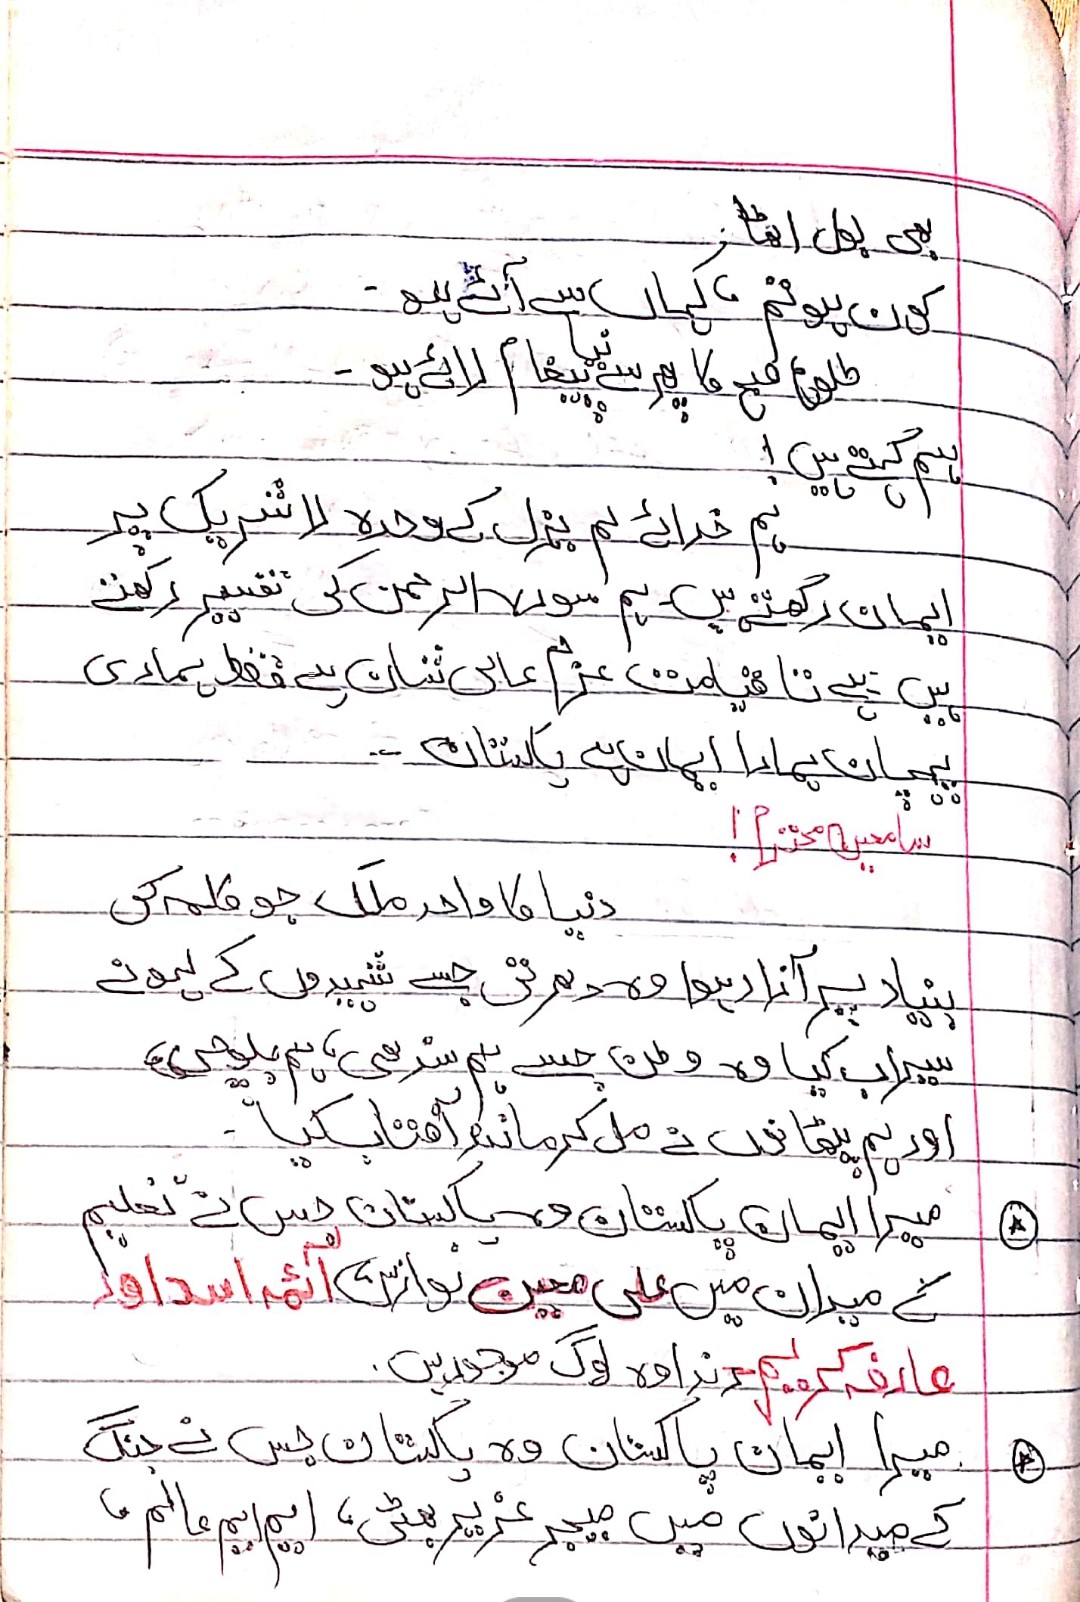 بھی بول اٹھا:
کون ہو تم، کہاں سے آئے ہو -
طلوع صبح کا پھر سے نیا پیغام لائے ہو -
ہم کہتے ہیں!
ہم خدائے لم یزل کے وحدہ لا شریک پر
ایمان رکھتے ہیں۔ ہم سورہ الرحمن کی تفسیر رکھتے
ہیں - ہے تا قیامت عزم عالی شان ہے فقط ہماری
پہچان ہمارا ایمان ہے پاکستان --
سامعین محترم!
دنیا کا واحد ملک جو کلمہ کی
بنیاد پر آزاد ہوا وہ دھرتی جسے شہیدوں کے لہو نے
سیراب کیا وہ وطن جسے ہم سندھی، ہم بلوچی،
اور ہم پٹھانوں نے مل کر مانند آفتاب کیا -
میرا ایمان پاکستان وہ پاکستان جس نے تعلیم
کے میدان میں علی معین نوازش، آئمہ اسد اور
عارفہ کریم رندا وہ لوگ موجود ہیں.
میرا ایمان پاکستان وہ پاکستان جس نے جنگ
کے میدانوں میں میجر عزیز بھٹی، ایم ایم عالم،